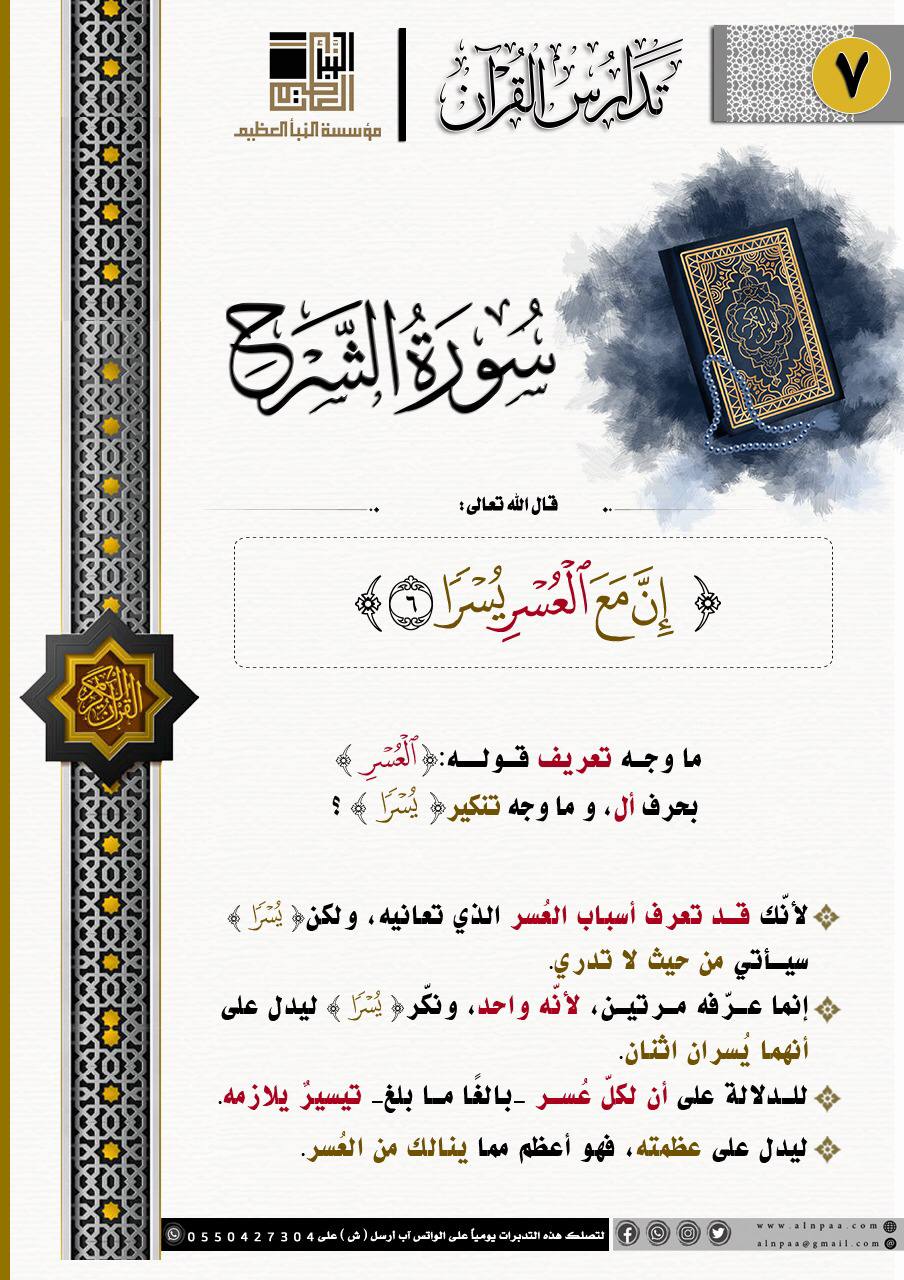 ٧
تَدَارُس القُرآن
النبأ العظيم
مؤسسة النبأ العظيم
سُورَةُ الشَّرْحِ
قال الله تعالى:
﴿ إِنَّ مَعَ ٱلۡعُسۡرِ يُسۡرٗا ٦ ﴾
القرآن الكريم
ما وجـه تعريف قـولــه:﴿ ٱلۡعُسۡرِ ﴾
بحرف أل، و ما وجه تنكير﴿ يُسۡرٗا ﴾ ؟
لأنّك قـد تعرف أسباب العُسر الذي تعانيه، ولكن﴿ يُسۡرٗا ﴾
سيـأتي من حيث لا تدري.
إنما عـرّفه مـرتيـن، لأنّه واحد، ونكّر﴿ يُسۡرٗا ﴾ ليدل على
أنهما يُسران اثنان.
للـدلالة على أن لكلّ عُسـر -بالغًا مـا بلغ- تيسيرٌ يلازمه.
ليدل على عظمته، فهو أعظم مما ينالك من العُسر.
لتصلك هذه التدبرات يومياً على الواتس آب أرسل ( ش ) على 0550427304
www.alnpaa.com
alnpaa@gmail.com